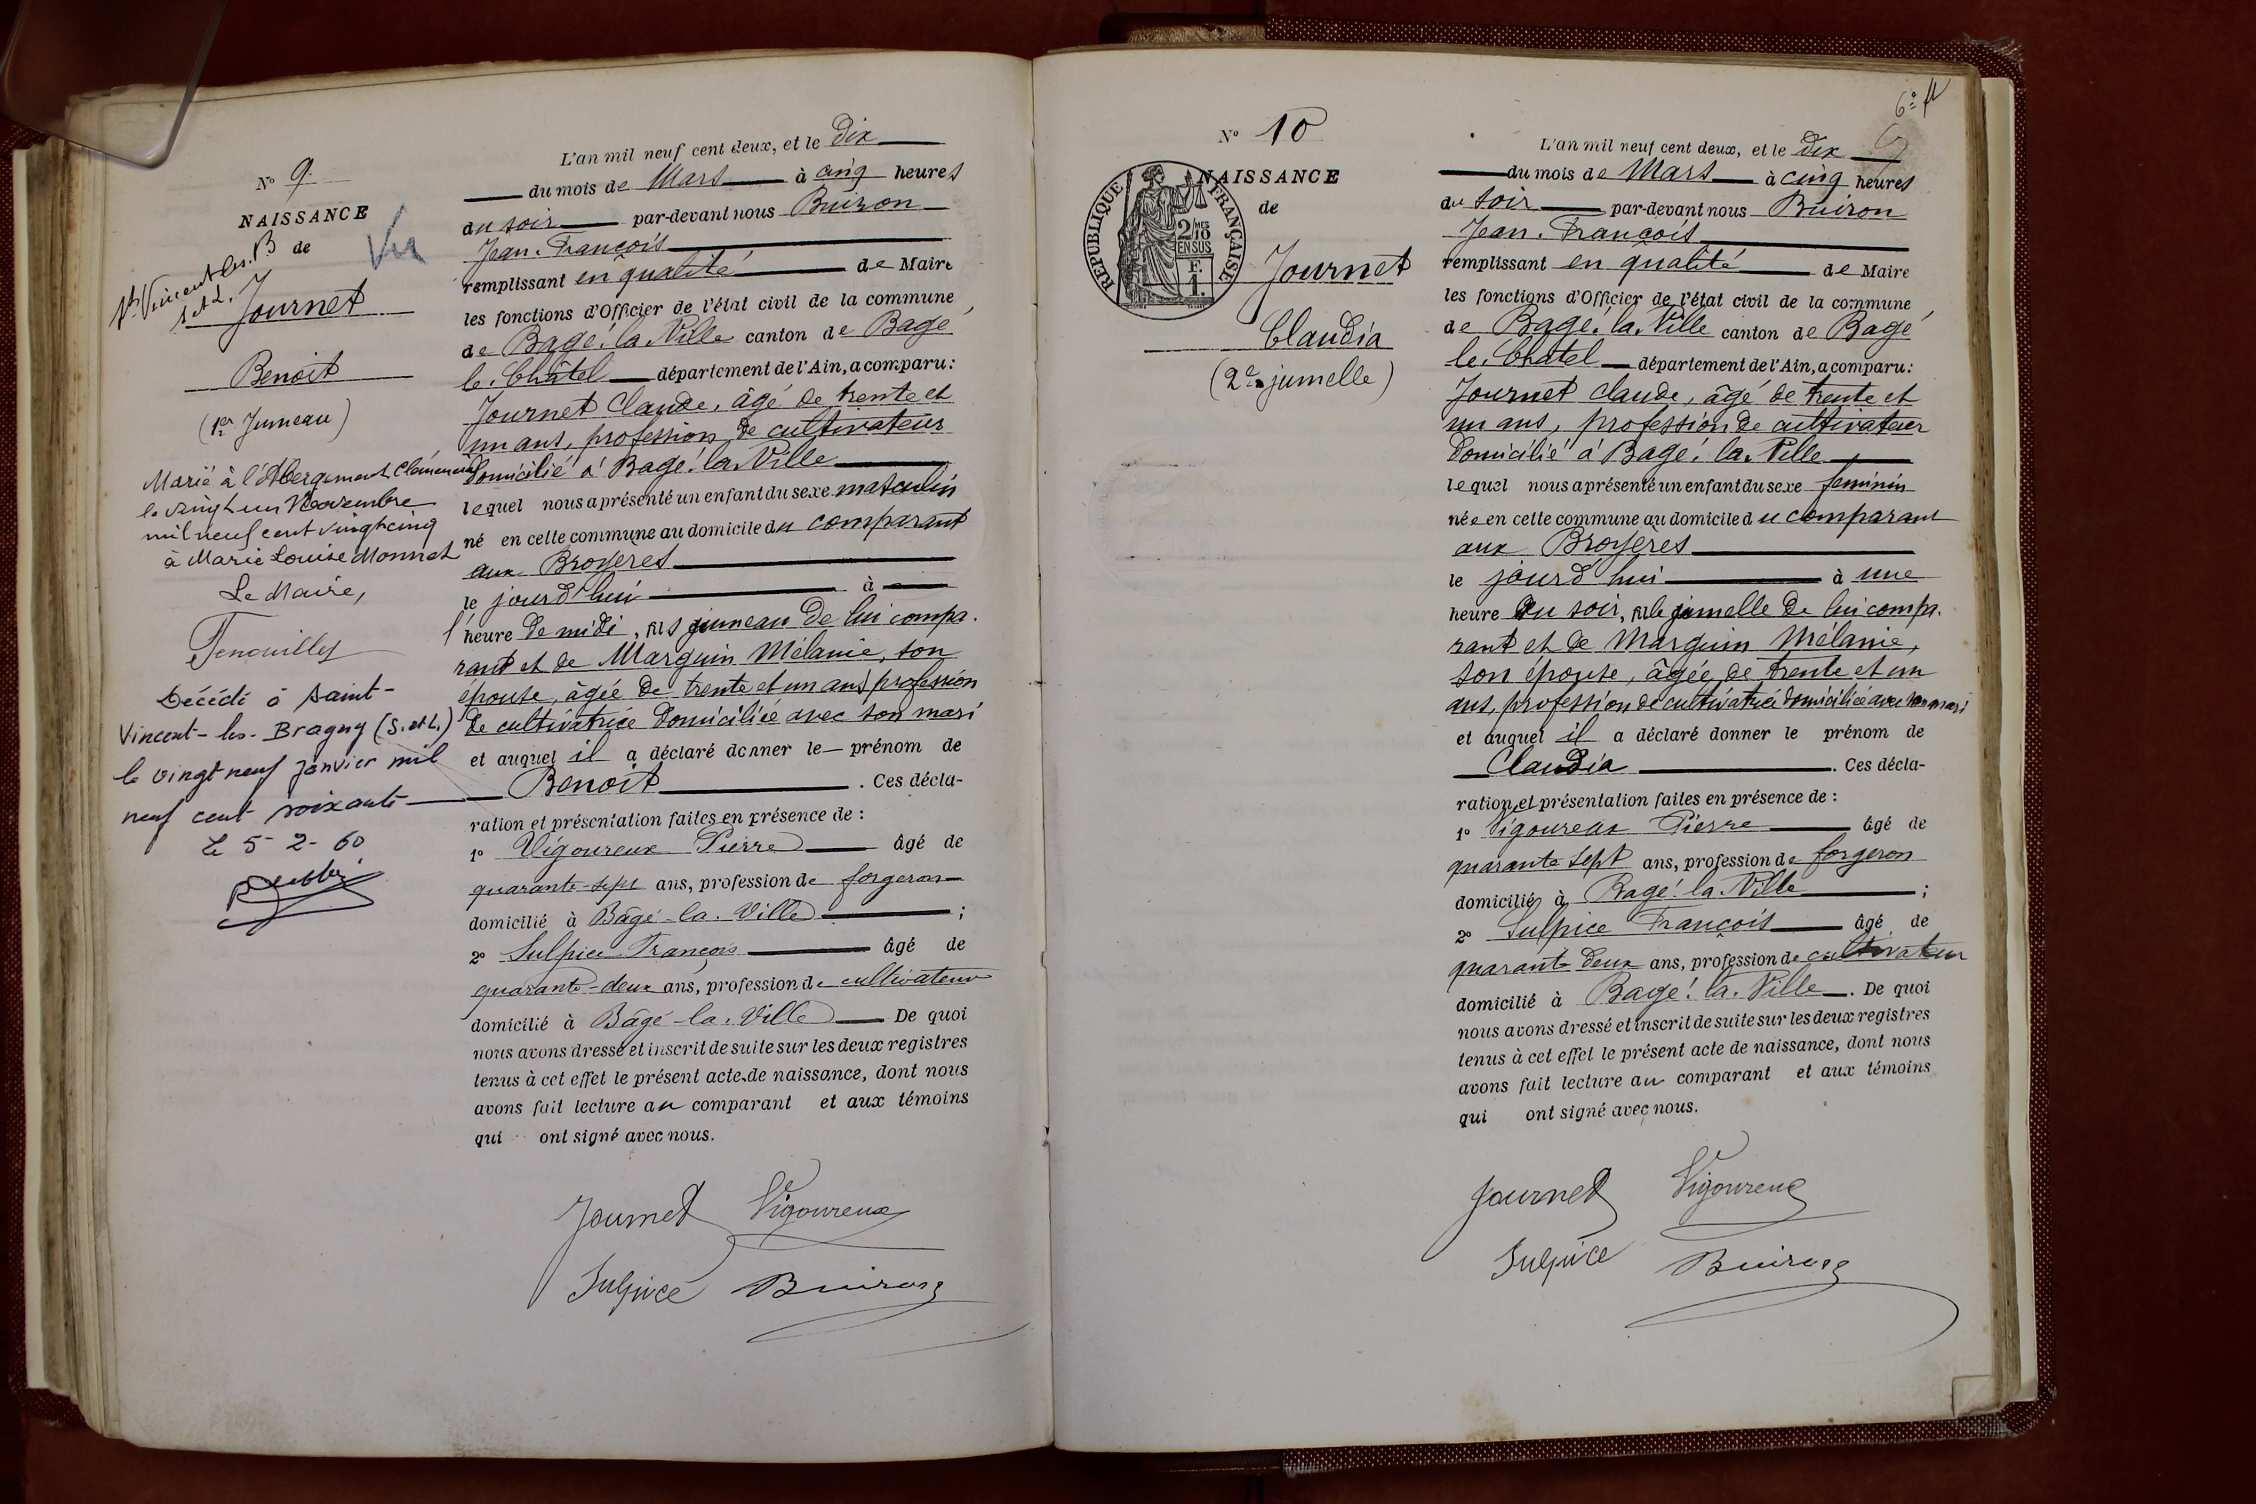 N° 9.
NAISSANCE
de
St Vincent les. B
S. et L.
Vu
Journet
Benoit
(1er Jumeau)
Marié à l'Abergement Clémenciat
le vingt un Novembre
mil neuf cent vingt cinq
à Marie Louise Monnet
Le Maire,
Décédé à Saint-
Vincent-les-Bragny (S. et L.)
le vingt neuf janvier mil
neuf cent soixante
Le 5-2-60
L'an mil neuf cent deux, et le dix
du mois de Mars à cinq heures
du soir par-devant nous Buiron
Jean-François
remplissant en qualité de Maire
les fonctions d'Officier de l'état civil de la commune
de Bagé-la-Ville canton de Bagé
le-Châtel département de l'Ain, a comparu:
Journet Claude, âgé de trente et
un ans, profession de cultivateur
domicilié à Bagé-la-Ville
lequel nous a présenté un enfant du sexe masculin
né en cette commune au domicile du comparant
aux Broyères
le jourd'hui à
l'heure de midi, fils jumeau de lui compa-
rant et de Marguin Mélanie, son
épouse, âgée de trente et un ans, profession
de cultivatrice domiciliée avec son mari
et auquel il a déclaré donner le prénom de
Benoit. Ces décla-
ration et présentation faites en présence de :
1° Vigoureux Pierre âgé de
quarante-sept ans, profession de forgeron
domicilié à Bâgé-la-Ville ;
2° Sulpice François âgé de
quarante-deux ans, profession de cultivateur
domicilié à Bâgé-la-Ville De quoi
nous avons dressé et inscrit de suite sur les deux registres
tenus à cet effet le présent acte de naissance, dont nous
avons fait lecture au comparant et aux témoins
qui ont signé avec nous.
Journet Vigoureux
Sulpice Buiron
6e
N° 10
NAISSANCE
de
RÉPUBLIQUE FRANÇAISE
2/10 MES
EN SUS
F.
1.
Journet
Claudia
(2e jumelle)
L'an mil neuf cent deux, et le dix
du mois de Mars à cinq heures
du soir par-devant nous Buiron
Jean-François
remplissant en qualité de Maire
les fonctions d'Officier de l'état civil de la commune
de Bagé-la-Ville canton de Bagé
le-Châtel département de l'Ain, a comparu:
Journet Claude, âgé de trente et
un ans, profession de cultivateur
domicilié à Bagé-la-Ville
lequel nous a présenté un enfant du sexe féminin
née en cette commune au domicile du comparant
aux Broyères
le jourd'hui à une
heure du soir, fille jumelle de lui compa-
rant et de Marguin Mélanie,
son épouse, âgée de trente et un
ans, profession de cultivatrice domiciliée avec son mari
et auquel il a déclaré donner le prénom de
Claudia. Ces décla-
ration et présentation faites en présence de :
1° Vigoureux Pierre âgé de
quarante sept ans, profession de forgeron
domicilié à Bagé-la-Ville ;
2° Sulpice François âgé de
quarante deux ans, profession de cultivateur
domicilié à Bagé-la-Ville. De quoi
nous avons dressé et inscrit de suite sur les deux registres
tenus à cet effet le présent acte de naissance, dont nous
avons fait lecture au comparant et aux témoins
qui ont signé avec nous.
Journet Vigoureux
Sulpice Buiron